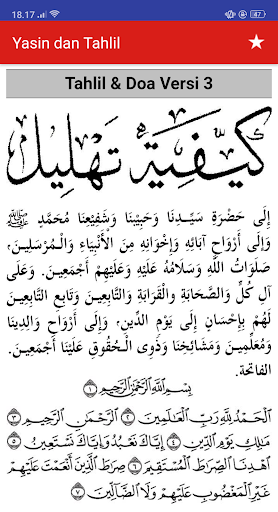 18.17
42%
Yasin dan Tahlil
Tahlil & Doa Versi 3
كَيْفِيَّةُ تَهْلِيْل
إِلَى حَضْرَةِ سَيِّدِنَا وَحَبِيْبِنَا وَشَفِيْعِنَا مُحَمَّدٍ ﷺ
وَإِلَى أَرْوَاحِ آبَائِهِ وَإِخْوَانِهِ مِنَ الْأَنْبِيَاءِ وَالْمُرْسَلِيْنَ،
صَلَوَاتُ اللّٰهِ وَسَلَامُهُ عَلَيْهِ وَعَلَيْهِمْ أَجْمَعِيْنَ. وَعَلَى
آلِ كُلٍّ وَالصَّحَابَةِ وَالْقَرَابَةِ وَالتَّابِعِيْنَ وَتَابِعِ التَّابِعِيْنَ
لَهُمْ بِإِحْسَانٍ إِلَى يَوْمِ الدِّيْنِ، وَإِلَى أَرْوَاحِ وَالِدِيْنَا
وَمُعَلِّمِيْنَ وَمَشَائِخِنَا وَذَوِى الْحُقُوْقِ عَلَيْنَا أَجْمَعِيْنَ.
الفاتحة.
بِسْمِ اللّٰهِ الرَّحْمٰنِ الرَّحِيْمِ ١
اَلْحَمْدُ لِلّٰهِ رَبِّ الْعَالَمِيْنَ ٢ اَلرَّحْمَانِ الرَّحِيْمِ ٣
مَالِكِ يَوْمِ الدِّيْنِ ٤ إِيَّاكَ نَعْبُدُ وَإِيَّاكَ نَسْتَعِيْنُ ٥
اِهْدِنَا الصِّرَاطَ الْمُسْتَقِيْمَ ٦ صِرَاطَ الَّذِيْنَ أَنْعَمْتَ عَلَيْهِمْ
غَيْرِ الْمَغْضُوْبِ عَلَيْهِمْ وَلَا الضَّالِّيْنَ ٧